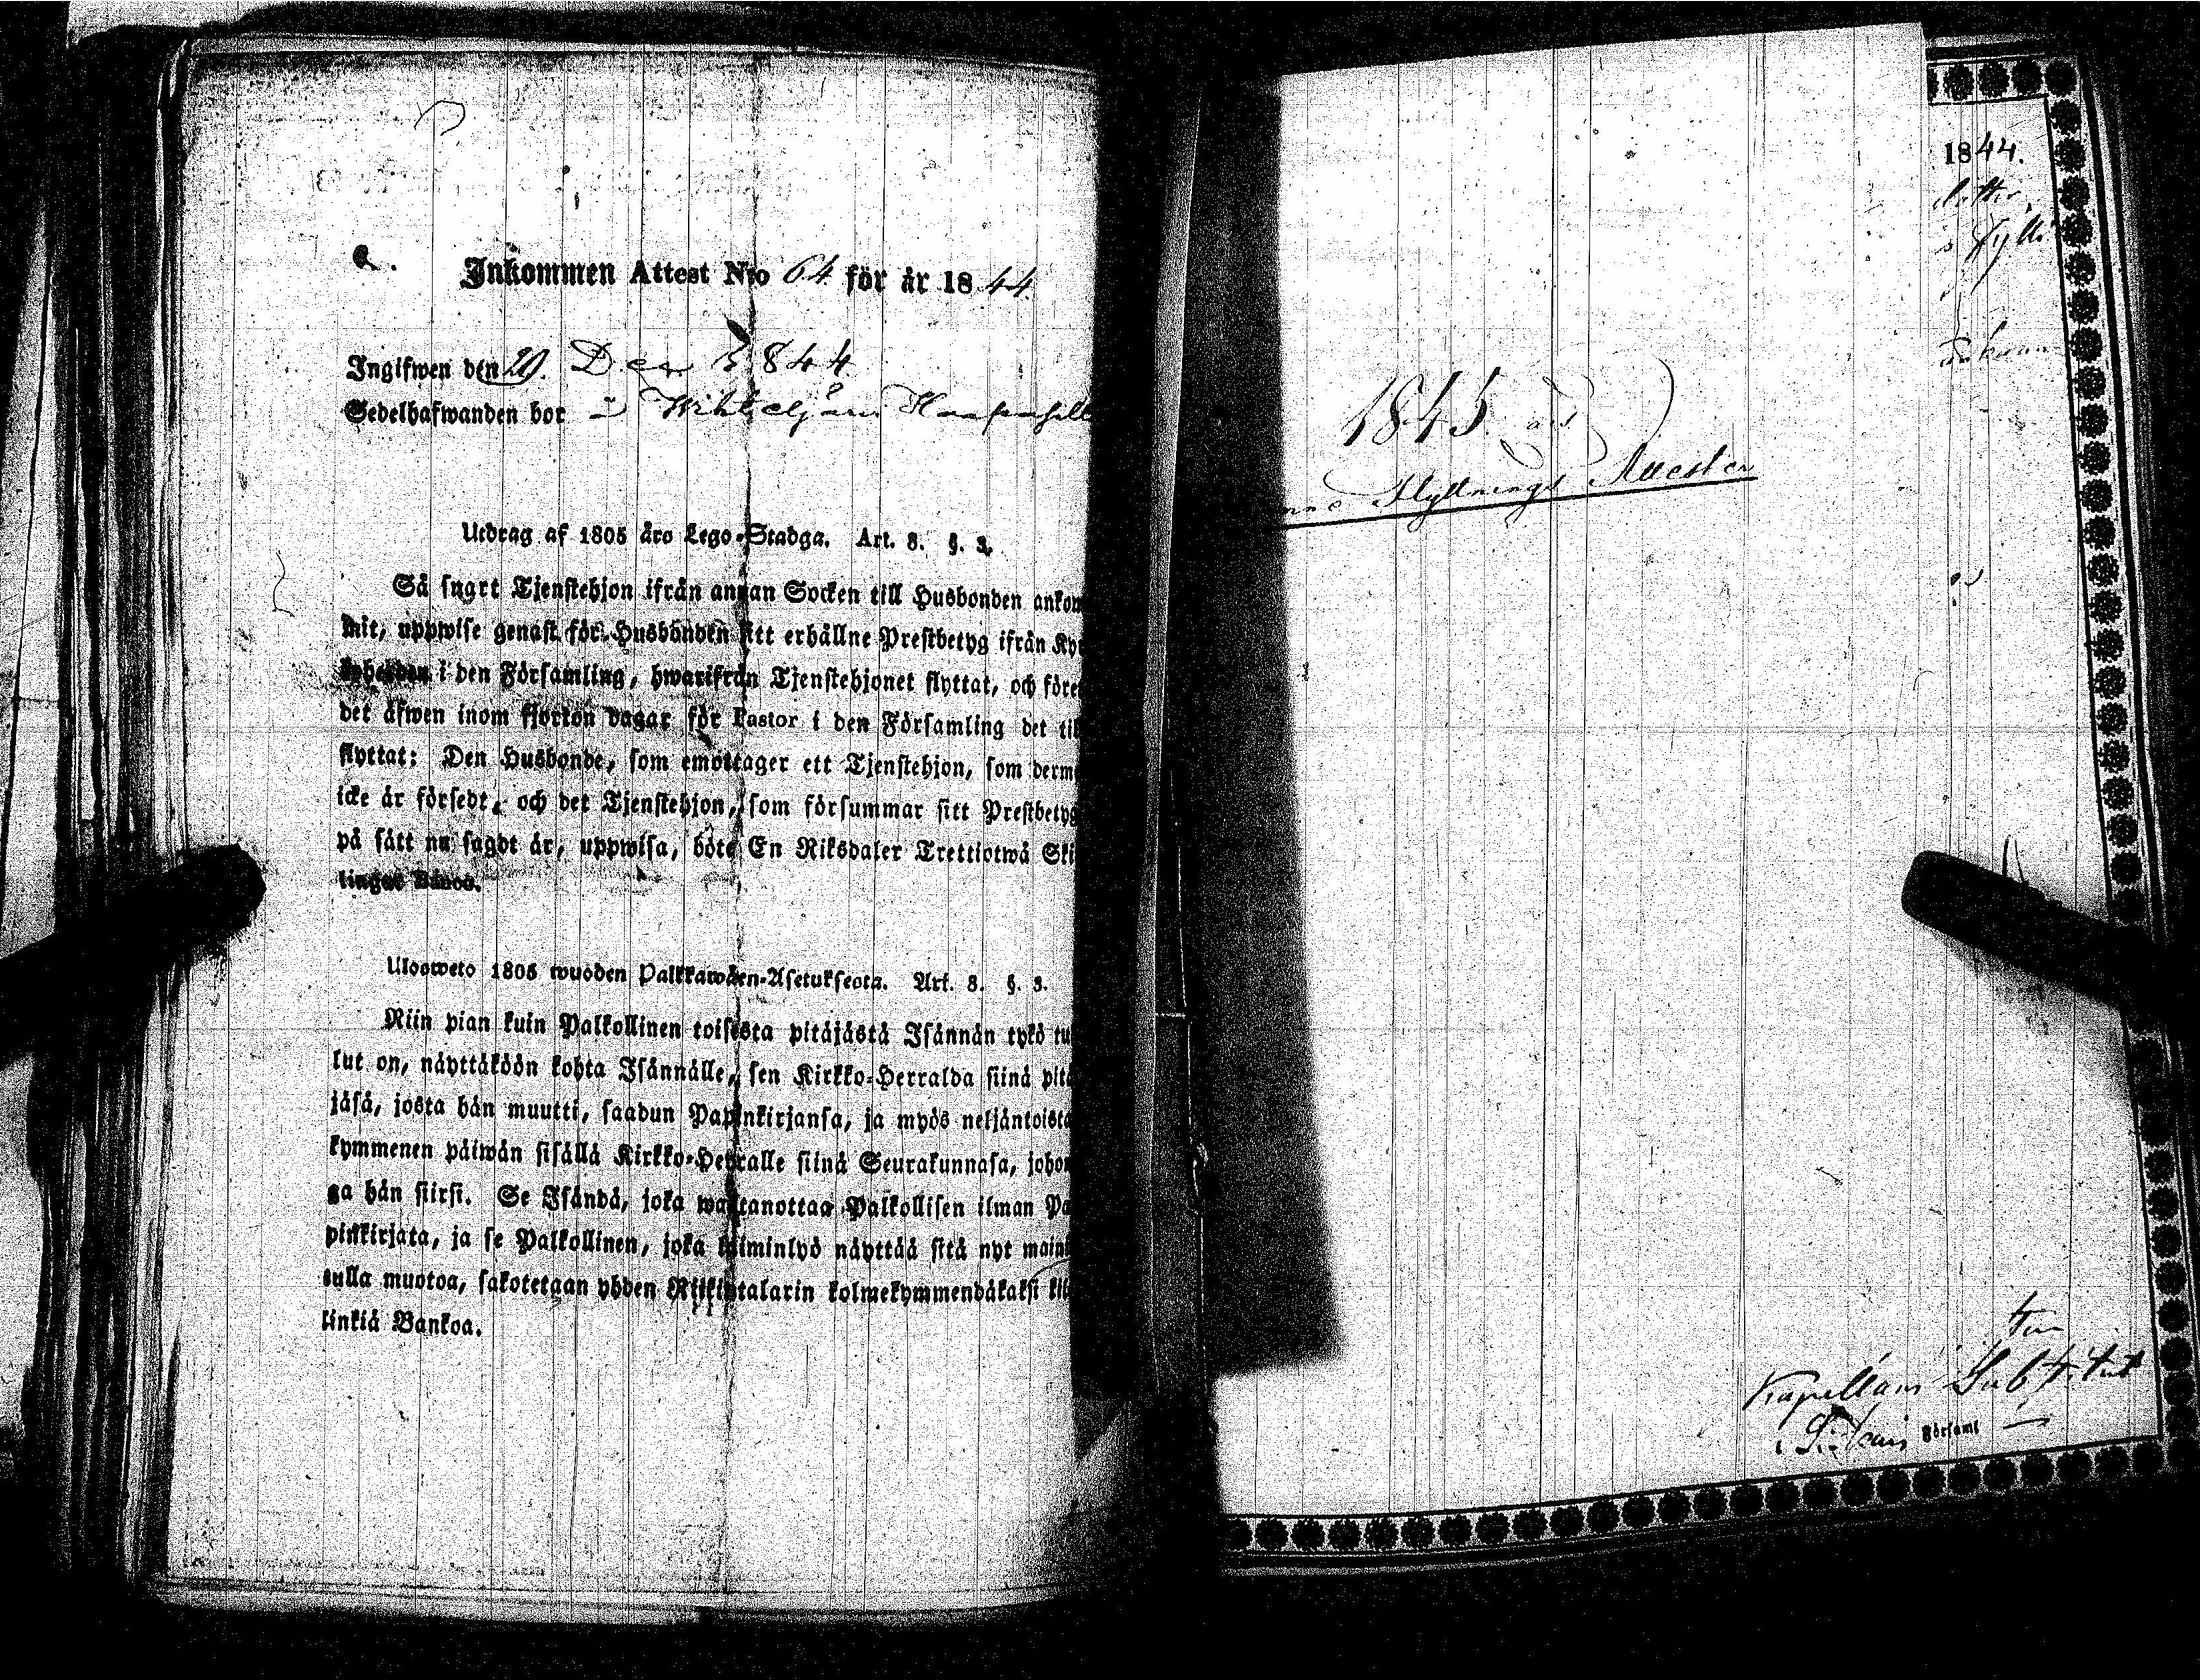 Inkommen Attest No 64 för år 1844.
Ingifwen den 29. Dec 1844
Sedelhafwanden bor i
Utdrag af 1805 års Lego-Stadga. Art. 8. §. 3.
Så snart Tjenstehjon ifrån annan Socken till Husbonden ankom
mit, uppwise genast för Husbonden sitt erhållne Prestbetyg ifrån Kyr
i den Församling, hwarifrån Tjenstehjonet flyttat, och före
det äfwen inom fjorton dagar för Pastor i den Församling det til
flyttat: Den Husbonde, som emottager ett Tjenstehjon, som derm
icke är försedt, och det Tjenstehjon, som försummar sitt Prestbetyg
på sätt nu sagdt är, uppwisa, böte En Riksdaler Trettiotwå Ski
lingar Banco.
Ulosweto 1805 wuoden Palkkawäen-Asetuksesta. Art. 8. §. 3.
Niin pian kuin Palkollinen toisesta pitäjästä Isännän tykö tu
lut on, näyttäköön kohta Isännälle, sen Kirkko-Herralda siinä pitä
jäsä, josta hän muutti, saadun Papinkirjansa, ja myös neljäntoista
kymmenen päiwän sisällä Kirkko-Herralle siinä Seurakunnasa, johon
ga hän siirsi. Se Isändä, joka wastanottaa Palkollisen ilman Pa
pinkirjata, ja se Palkollinen, joka laiminlyö näyttää sitä nyt maini
tulla muotoa, sakotetaan yhden Riikintalarin kolmekymmendäkaksi kil
linkiä Bankoa.
1845 års
Flyttnings Attester
1844.
Kapellans Substitut
Församl